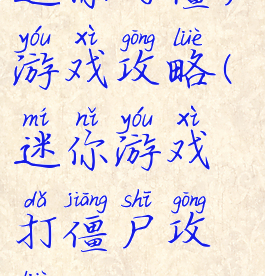 yóu xì gōng lüè
游戏攻略(
mí nǐ yóu xì
迷你游戏
dǎ jiāng shī gōng
打僵尸攻